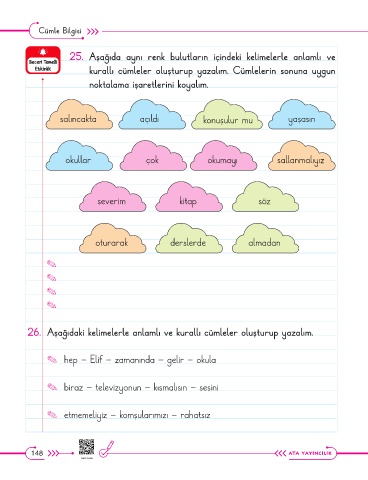 Cümle Bilgisi
Beceri Temelli
Etkinlik
25. Aşağıda aynı renk bulutların içindeki kelimelerle anlamlı ve
kurallı cümleler oluşturup yazalım. Cümlelerin sonuna uygun
noktalama işaretlerini koyalım.
salıncakta açıldı konuşulur mu yaşasın
okullar çok okumayı sallanmalıyız
severim kitap söz
oturarak derslerde almadan
26. Aşağıdaki kelimelerle anlamlı ve kurallı cümleler oluşturup yazalım.
hep – Elif – zamanında – gelir – okula
biraz – televizyonun – kısmalısın – sesini
etmemeliyiz – komşularımızı – rahatsız
148 ATA YAYINCILIK